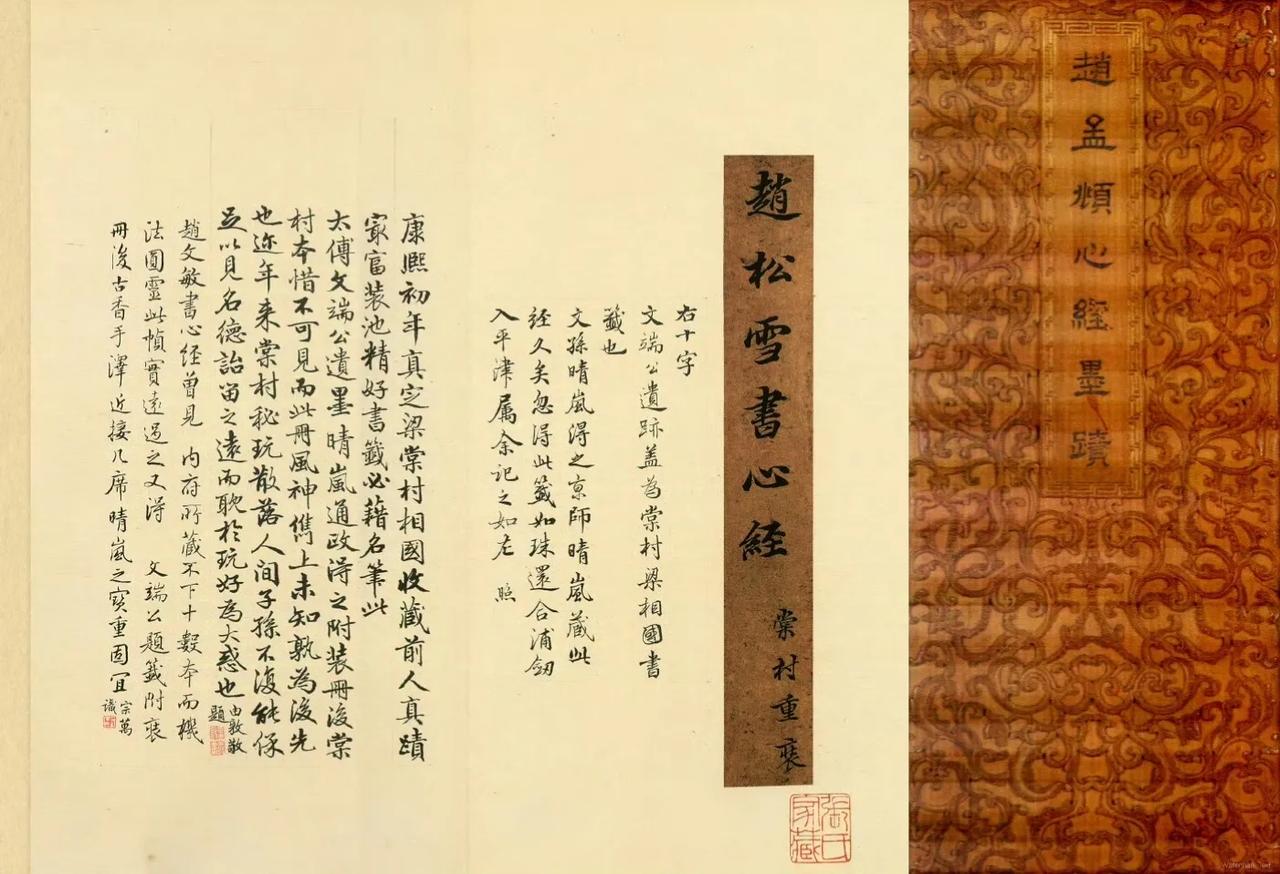 趙孟頫心經墨蹟
趙松雪書心經
棠村重裝
張氏家藏
右十字
文端公遺跡蓋為棠村梁相國書
籤也
文孫晴嵐得之京師晴嵐藏此
经久矣忽得此籤如珠還合浦劒
入平津属余記之如左 照
康熙初年真定梁棠村相國收藏前人真蹟
寂富装池精好書籤必藉名筆此
太傅文端公遺墨晴嵐通政得之附装冊後棠
村本惜不可見而此冊風神儁上未知孰為後先
也迩年来棠村秘玩散落人间子孫不復能保
足以見名德詒留之遠而耽於玩好為大惑也
由敦敬
題
趙文敏書心经曽見 内府所藏不下十數本而機
法圓靈此幀實遠過之又得 文端公題籤附裝
冊後古香手澤近接几席晴嵐之寳重固宜
宗萬
識